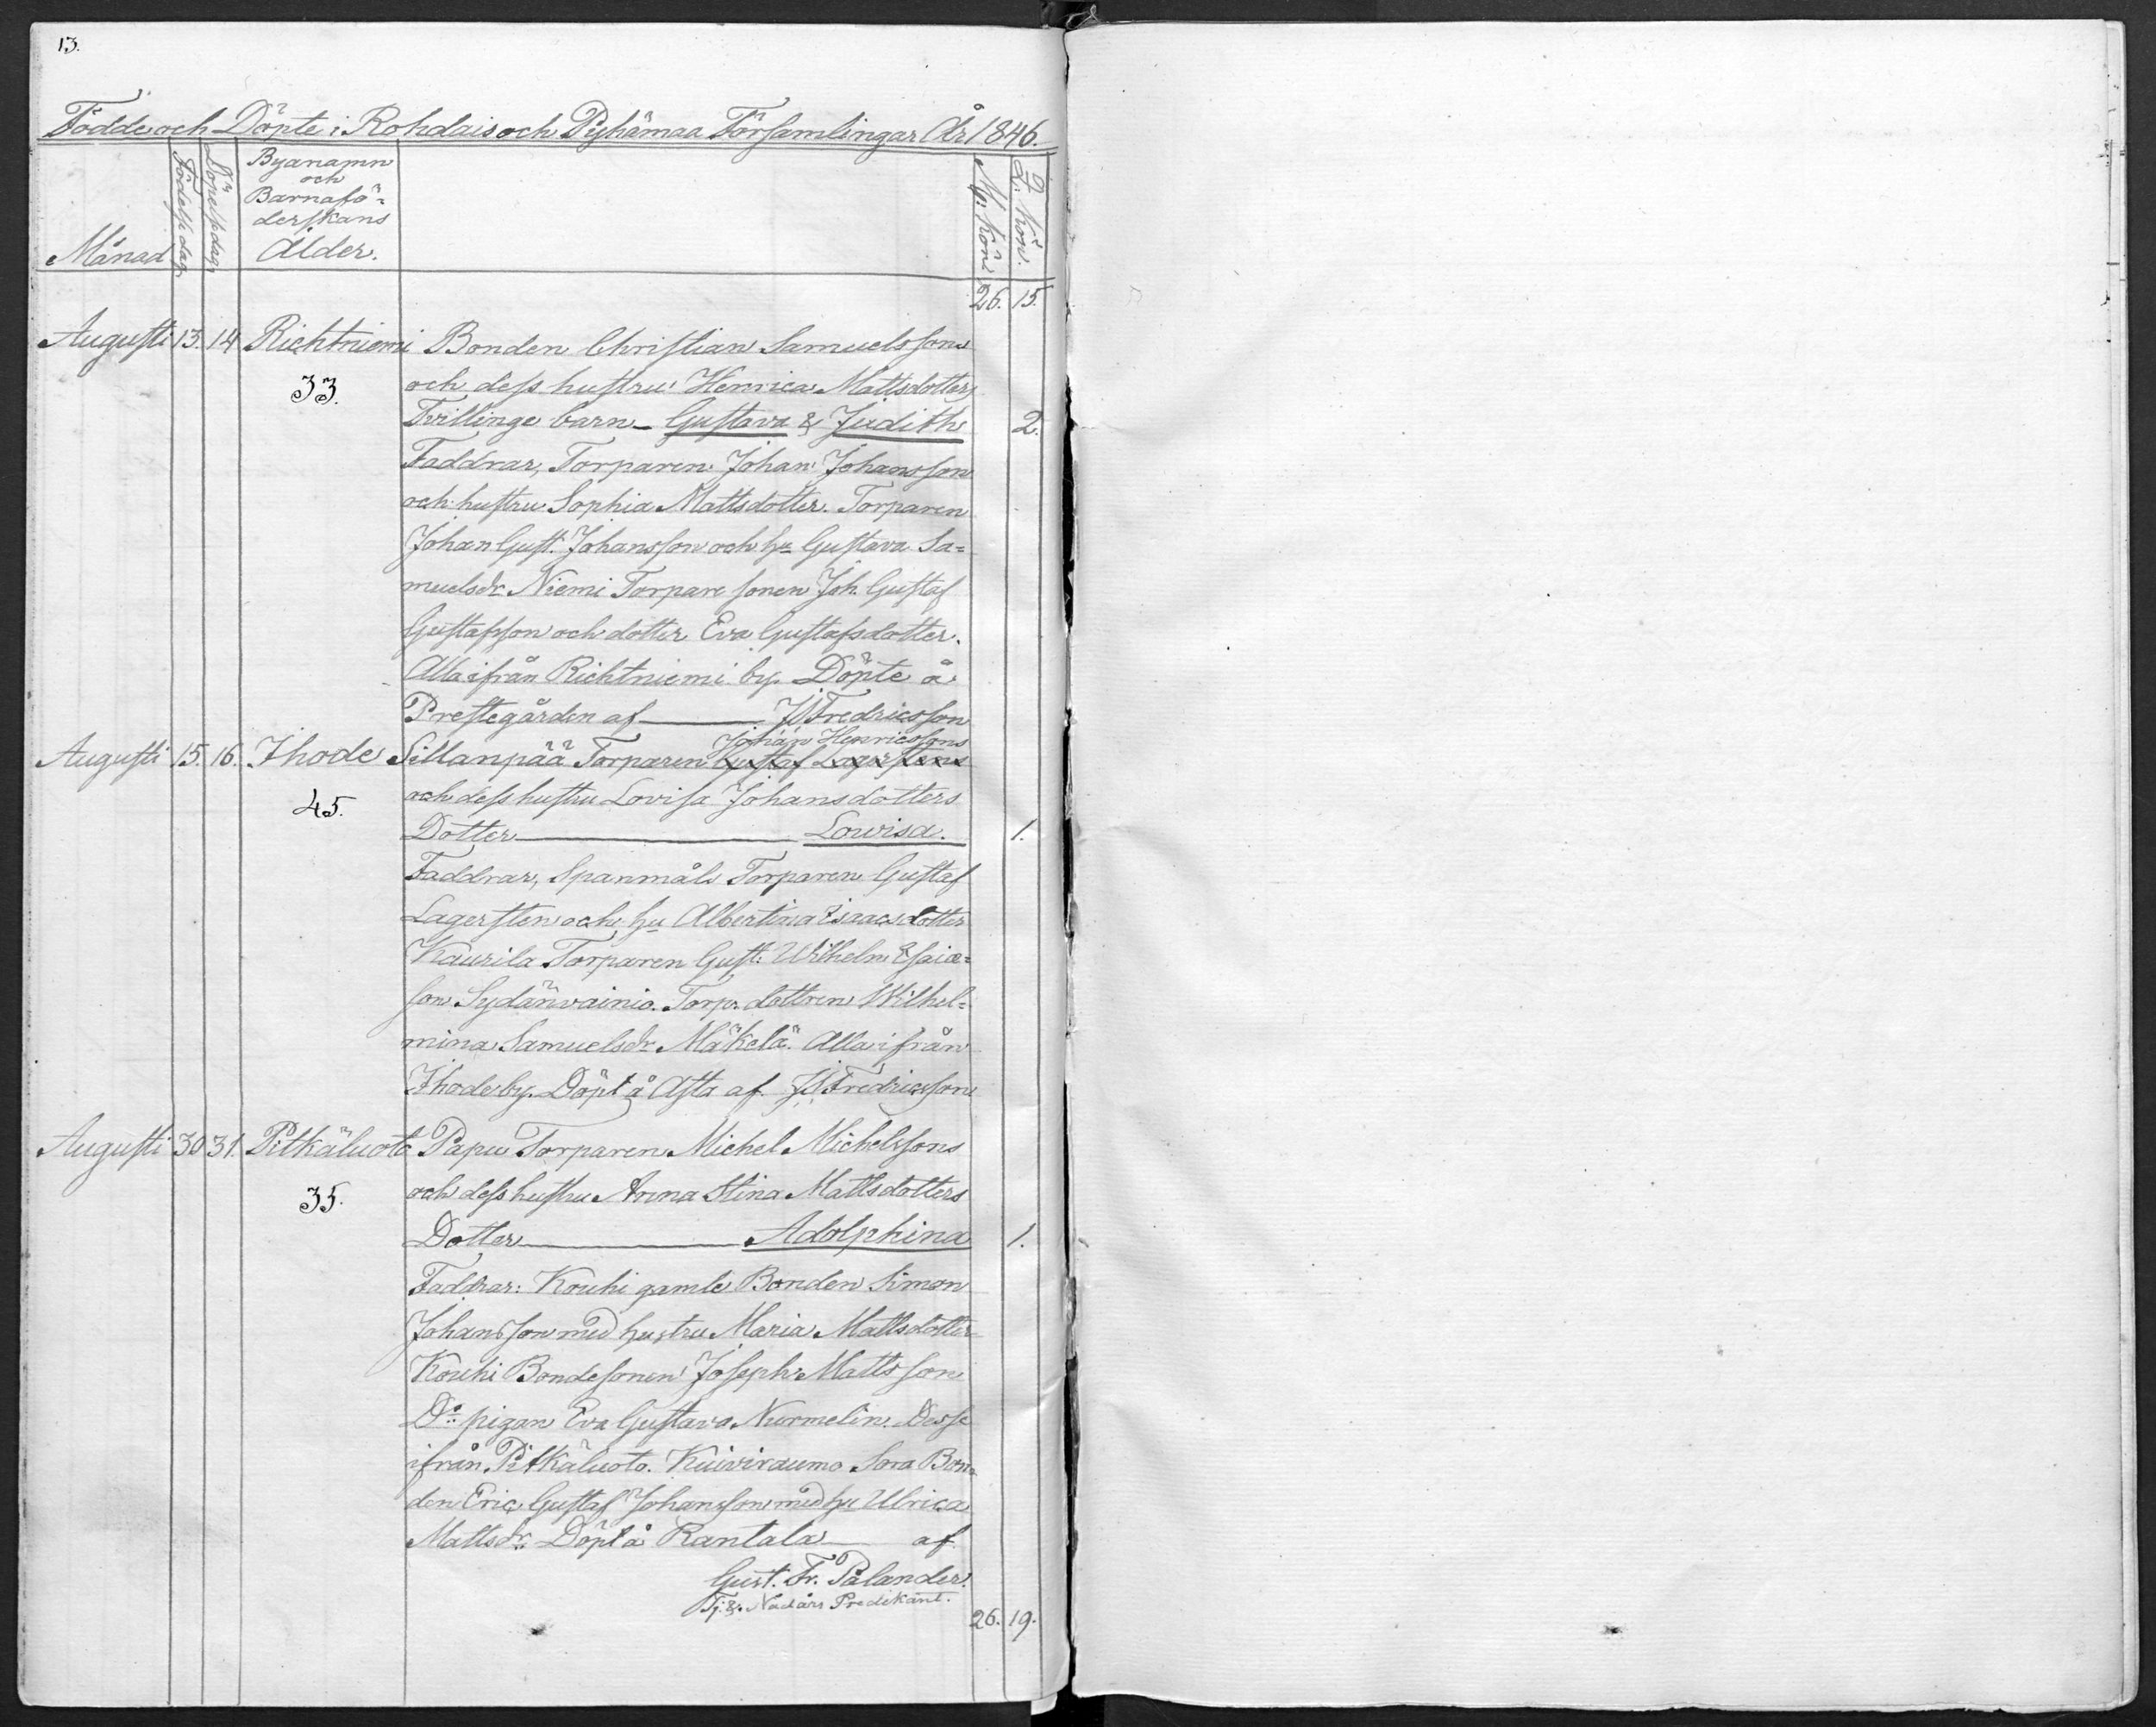 13.
Födde och Döpte i Rohdais och Pyhämaa Församlingar År 1846.
Månad
Födelse dag
Döpelse dag
Byanamn
och
Barnafö=
derskans
Ålder.
M: kön
Q: kön.
26. 15.
Augusti 13. 14 Richtniemi Bonden Christian Samuelssons
33. och dess hustru Henrica Mattsdotters
Tvillinge barn Gustava & Judith 2.
Faddrar, Torparen Johan Johansson
och hustru Sophia Mattsdotter. Torparen
Johan Gust. Johansson och hu Gustava Sa=
muelsdr Niemi Torpare sonen Joh. Gustaf
Gustafsson och dotter Eva Gustafsdotter.
Alla ifrån Richtniemi by. Döpte å
Prestegården af JFredricsson
Johan Henricssons
Augusti 15. 16. Ihode Sillanpää Torparen Gustaf Lagerstens
45. och dess hustru Lovisa Johansdotters
Dotter Lowisa. 1.
Faddrar, Spanmåls Torparen Gustaf
Lagersten och hu Albertina Isaacsdotter
Kaurila Torparen Gust: Wilhelm Esaia=
son Sydänvainio. Torp. dottren Wilhel=
mina Samuelsdr Mäkelä. Alla ifrån
Ihode by. Döpt å Asta af JFredricsson
Augusti 30 31. Pitkäluoto Papu Torparen Michel Michelssons
35. och dess hustru Anna Stina Mattsdotters
Dotter Adolphina 1.
Faddrar: Kouhi gamle Bonden Simon
Johansson med hustru Maria Mattsdotter
Kouhi Bondesonen Joseph Mattsson
Do pigan Eva Gustava Nurmelin. Desse
ifrån Pitkäluoto. Kuiviraumo Sora Bon=
den Eric Gustaf Johansson med hu Ulrica
Mattsdr. Döpt å Rantala af
Gust. Fr. Palander.
Tj. Nådårs Predikant.
26. 19.